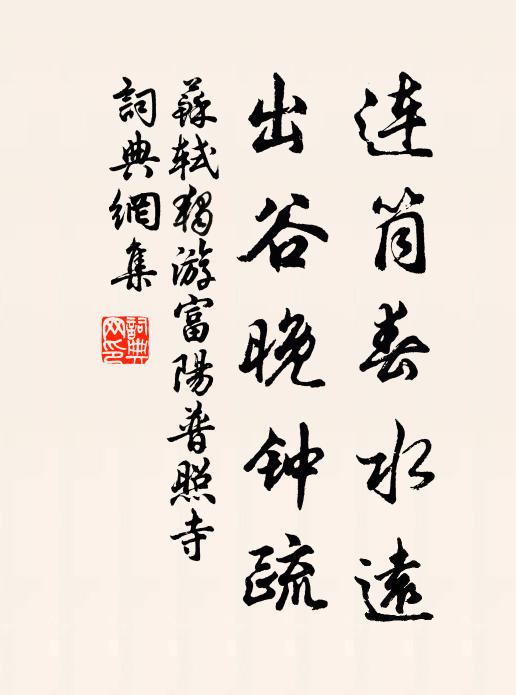 连筒春水遠
出谷晚钟疏
蘇軾獨游富陽普照寺
詞典網集
詞典网印